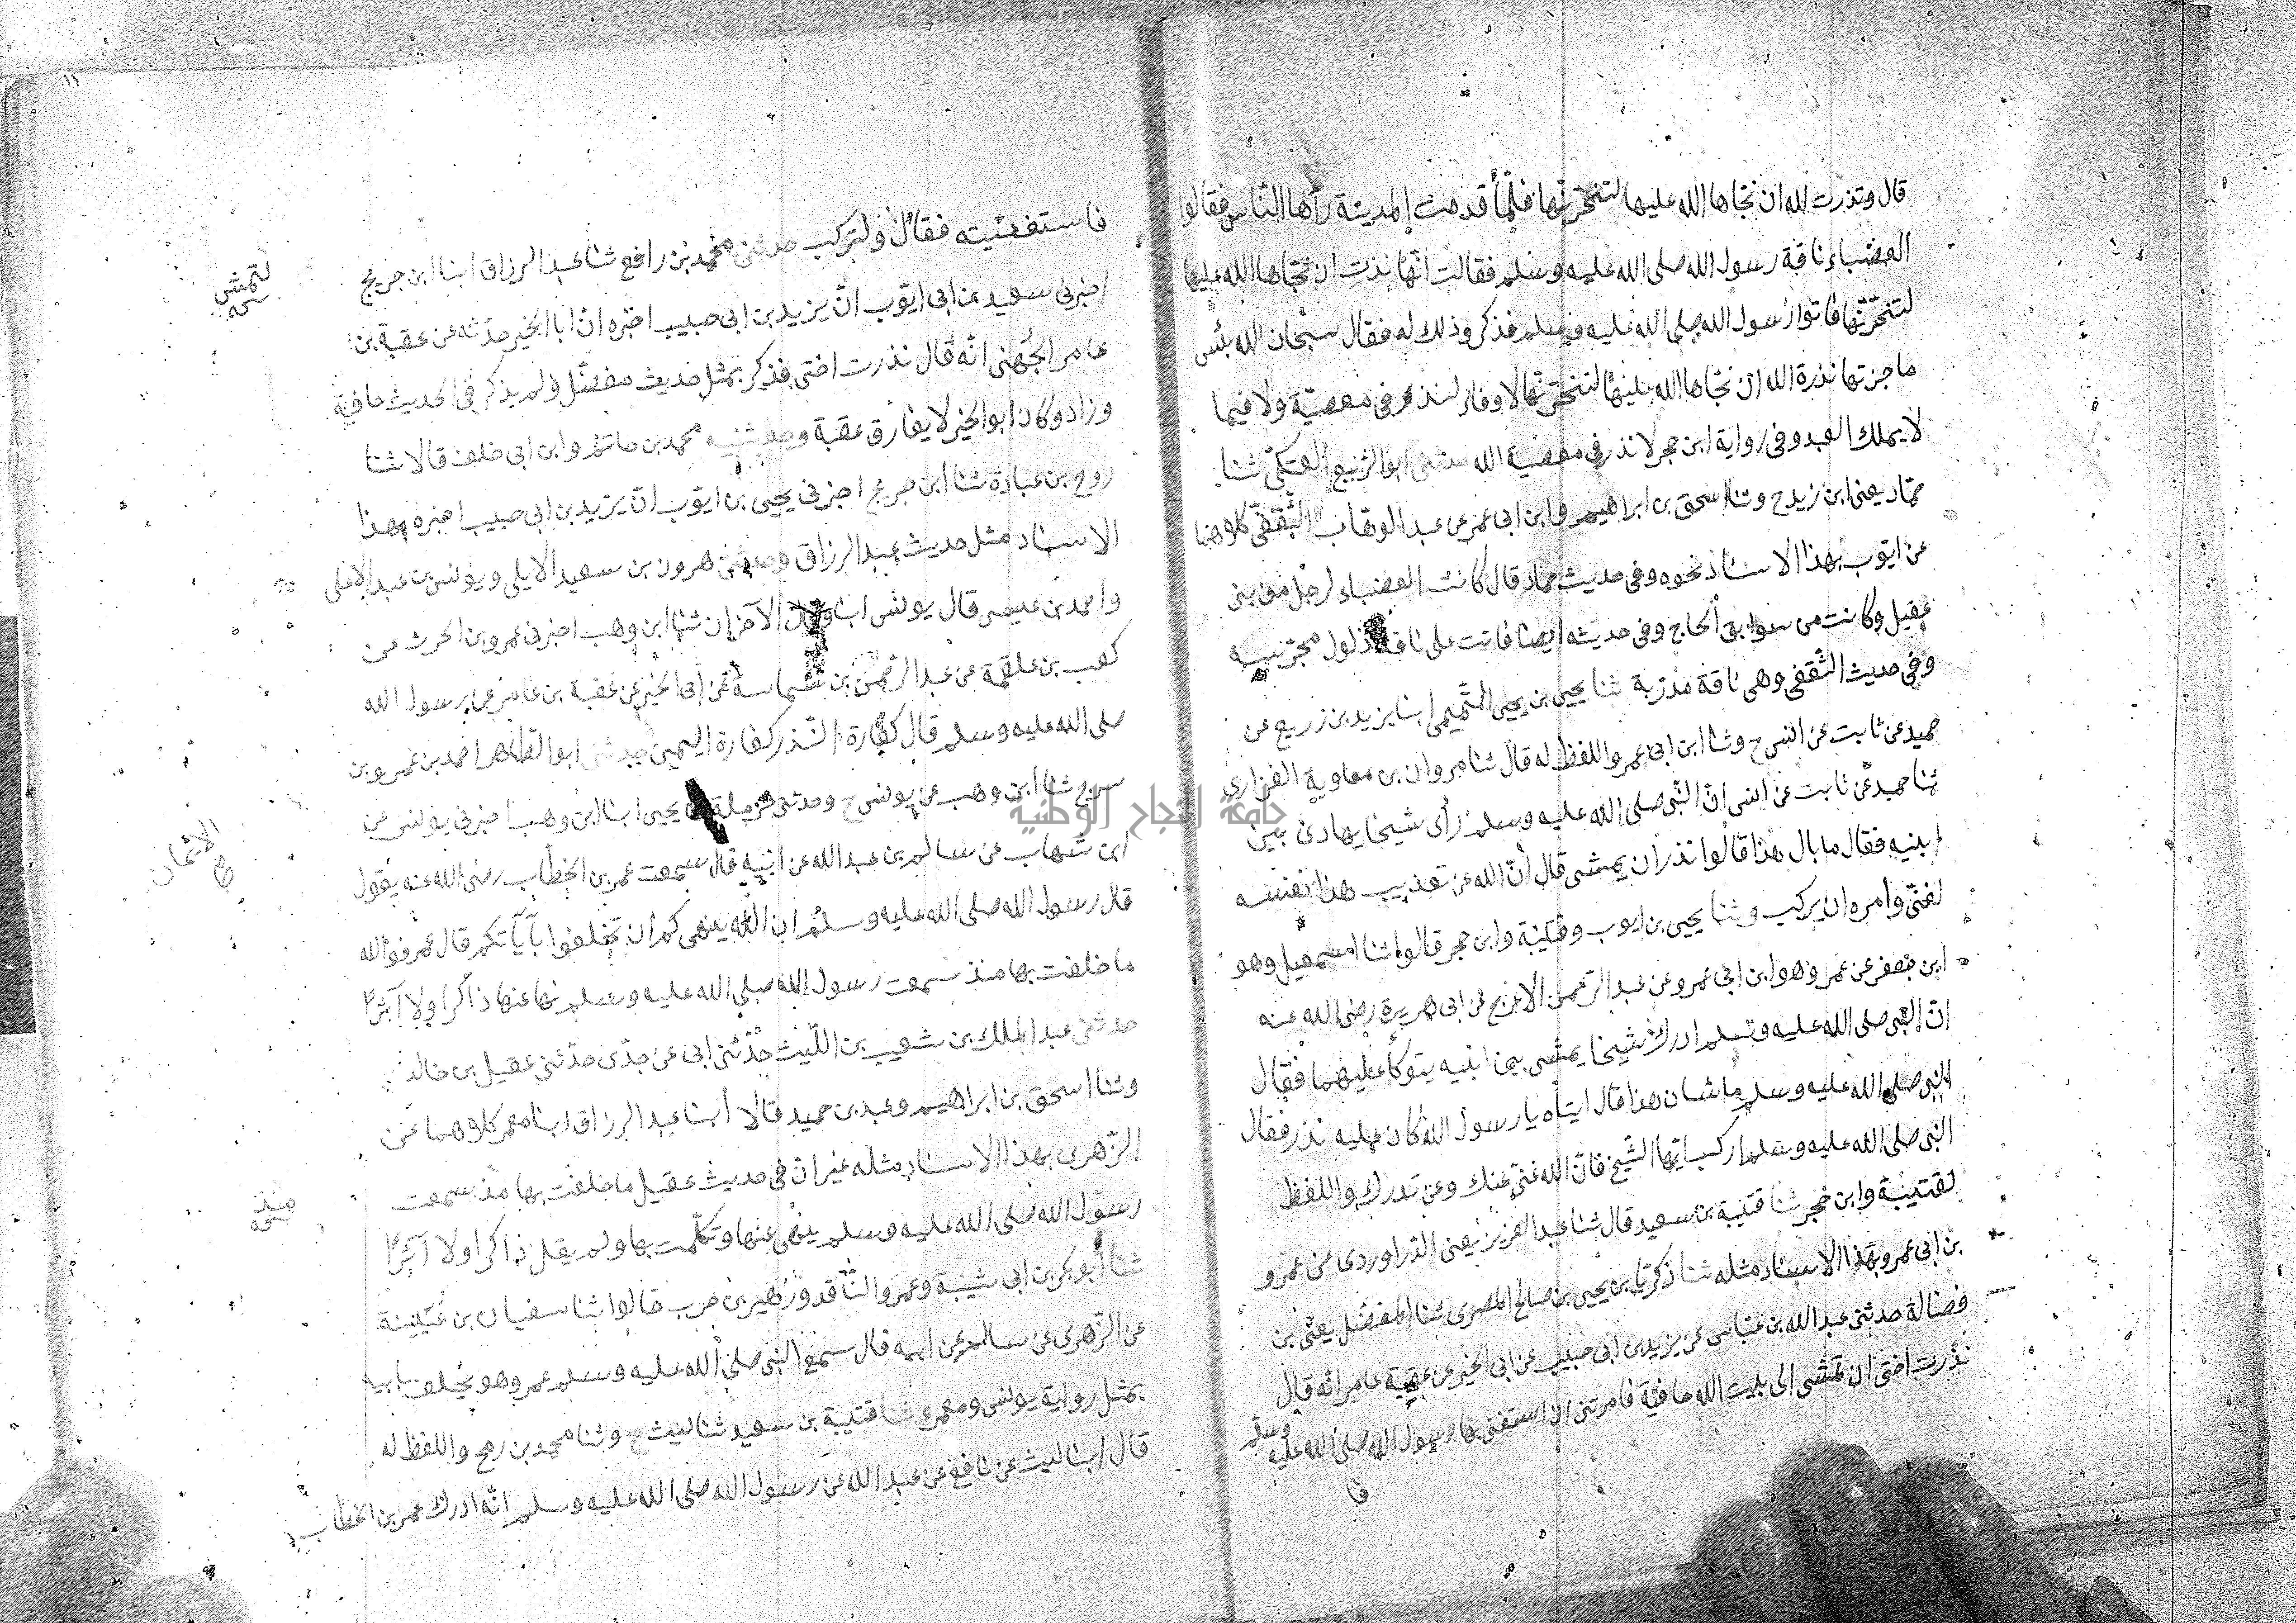 قال ونذرت لله ان نجاها الله عليها لتنحرنها فلما قدمت المدينة رآها الناس فقالوا
العضباء ناقة رسول الله صلى الله عليه وسلم فقالت انها نذرت ان نجاها الله عليها
لتنحرنها فاتوا رسول الله صلى الله عليه وسلم فذكروذلك له فقال سبحان الله بئس
ما جزتها نذرة الله ان نجاها الله عليها لتنحرنها لا وفاء لنذر فى معصية ولا فيما
لا يملك العبد وفى رواية ابن حجر لا نذر فى معصية الله حدثنى ابو الربيع العتكى ثنا
حماد يعنى ابن زيد ح وثنا اسحق بن ابراهيم وابن ابى عمر عن عبد الوهاب الثقفى كلاهما
عن ايوب بهذا الاسناد نحوه وفى حديث حماد قال كانت العضباء لرجل من بنى
عقيل وكانت من سوابق الحاج وفى حديثه ايضا فاتت على ناقة ذلول مجرسة
وفى حديث الثقفى وهى ناقة مدربة ثنا يحيى بن يحيى التميمى ابنا يزيد بن زريع عن
حميد عن ثابت عن انس ح وثنا ابن ابى عمر واللفظ له قال ثنا مروان بن معاوية الفزارى
ثنا حميد عن ثابت عن انس ان النبى صلى الله عليه وسلم رأى شيخا يهادى بين
ابنيه فقال ما بال هذا قالوا نذر ان يمشى قال ان الله عن تعذيب هذا نفسه
لغنى وامره ان يركب وثنا يحيى بن ايوب وقتيبة وابن حجر قالوا ثنا اسمعيل وهو
ابن جعفر عن عمر وهو ابن ابى عمرو عن عبد الرحمن الاعرج عن ابى هريرة رضى الله عنه
ان النبى صلى الله عليه وسلم ادرك شيخا يمشى بين ابنيه يتوكأ عليهما فقال
النبى صلى الله عليه وسلم ما شان هذا قال ابناه يا رسول الله كان عليه نذر فقال
النبى صلى الله عليه وسلم اركب ايها الشيخ فان الله غنى عنك وعن نذرك واللفظ
لقتيبة وابن حجر ثنا قتيبة بن سعيد قال ثنا عبد العزيز يعنى الدراوردى عن عمرو
بن ابى عمرو بهذا الاسناد مثله ثنا زكريا بن يحيى بن صالح المصرى ثنا المفضل يعنى بن
فضالة حدثنى عبد الله بن عباس عن يزيد بن ابى حبيب عن ابى الخير عن عقبة عامر انه قال
نذرت اختى ان تمشى الى بيت الله حافية فامرتنى ان استفتى بها رسول الله صلى الله عليه وسلم
فا
١١
فاستفتيته فقال ولتركب حدثنى محمد بن رافع ثنا عبد الرزاق ابنا ابن جريج
لتمش
اخبرنى سعيد بن ابى ايوب ان يزيد بن ابى حبيب اخبره ان ابا الخير حدثه عن عقبة بن
عامر الجهنى انه قال نذرت اختى فذكر بمثل حديث مفضل ولم يذكر فى الحديث حافية
وزاد وكان ابو الخير لا يفارق عقبة وحدثنيه محمد بن حاتم وابن ابى خلف قالا ثنا
روح بن عبادة ثنا ابن جريج اخبرنى يحيى بن ايوب ان يزيد بن ابى حبيب اخبره بهذا
الاسناد مثل حديث عبد الرزاق وحدثنى هرون بن سعيد الايلى ويونس بن عبد الاعلى
واحمد بن عيسى قال يونس ابنا وقال الآخران ثنا ابن وهب اخبرنى عمرو بن الحرث عن
كعب بن علقمة عن عبد الرحمن بن شماسة عن ابى الخير عن عقبة بن عامر عن رسول الله
صلى الله عليه وسلم قال كفارة النذر كفارة اليمين حدثنى ابو الطاهر احمد بن عمرو بن
سرح ثنا ابن وهب عن يونس ح وحدثنى حرملة بن يحيى ابنا ابن وهب اخبرنى يونس عن
الايمان
ابن شهاب عن سالم بن عبد الله عن ابيه قال سمعت عمر بن الخطاب رضى الله عنه يقول
قال رسول الله صلى الله عليه وسلم ان الله ينهى كم ان تحلفوا بآبآئكم قال عمر فوالله
ما حلفت بها منذ سمعت رسول الله صلى الله عليه وسلم نها عنها ذاكرا ولا آثرا
حدثنى عبد الملك بن شعيب بن الليث حدثنى ابى عن جدى حدثنى عقيل بن خالد
وثنا اسحق بن ابراهيم وعبد بن حميد قالا أبنا عبد الرزاق ابنا معمر كلاوهما عن
الزهرى بهذا الاسناد مثله غير ان فى حديث عقيل ما حلفت بها مذ سمعت
منذ
رسول الله صلى الله عليه وسلم ينهى عنها وتكلمت بها ولم يقل ذاكرا ولا آثرا
ثنا أبو بكر بن ابى شيبة وعمرو الناقد وزهير بن حرب قالوا ثنا سفيان بن عيينة
عن الزهرى عن سالم عن ابيه قال سمع النبى صلى الله عليه وسلم عمر وهو يحلف بابيه
بمثل رواية يونس ومعمر وثنا قتيبة بن سعيد ثنا ليث ح وثنا محمد بن رمح واللفظ له
قال ابنا ليث عن نافع عن عبد الله عن رسول الله صلى الله عليه وسلم انه ادرك عمر بن الخطاب
جامعة النجاح الوطنية